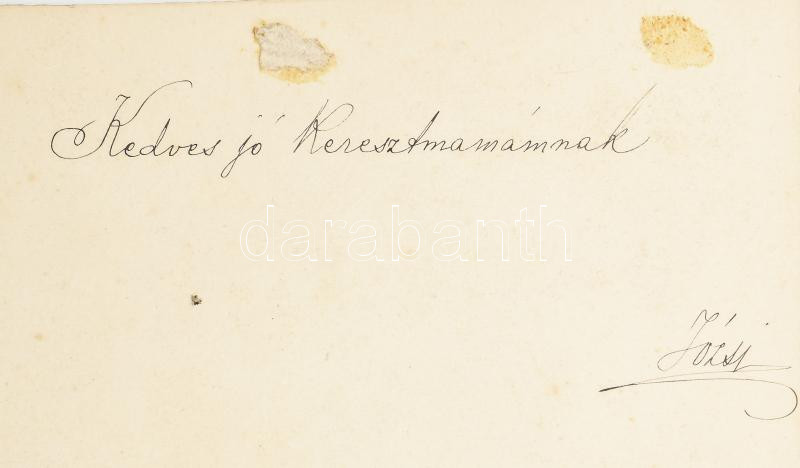 Kedves jó Keresztmamámnak
darabanth
Józsi